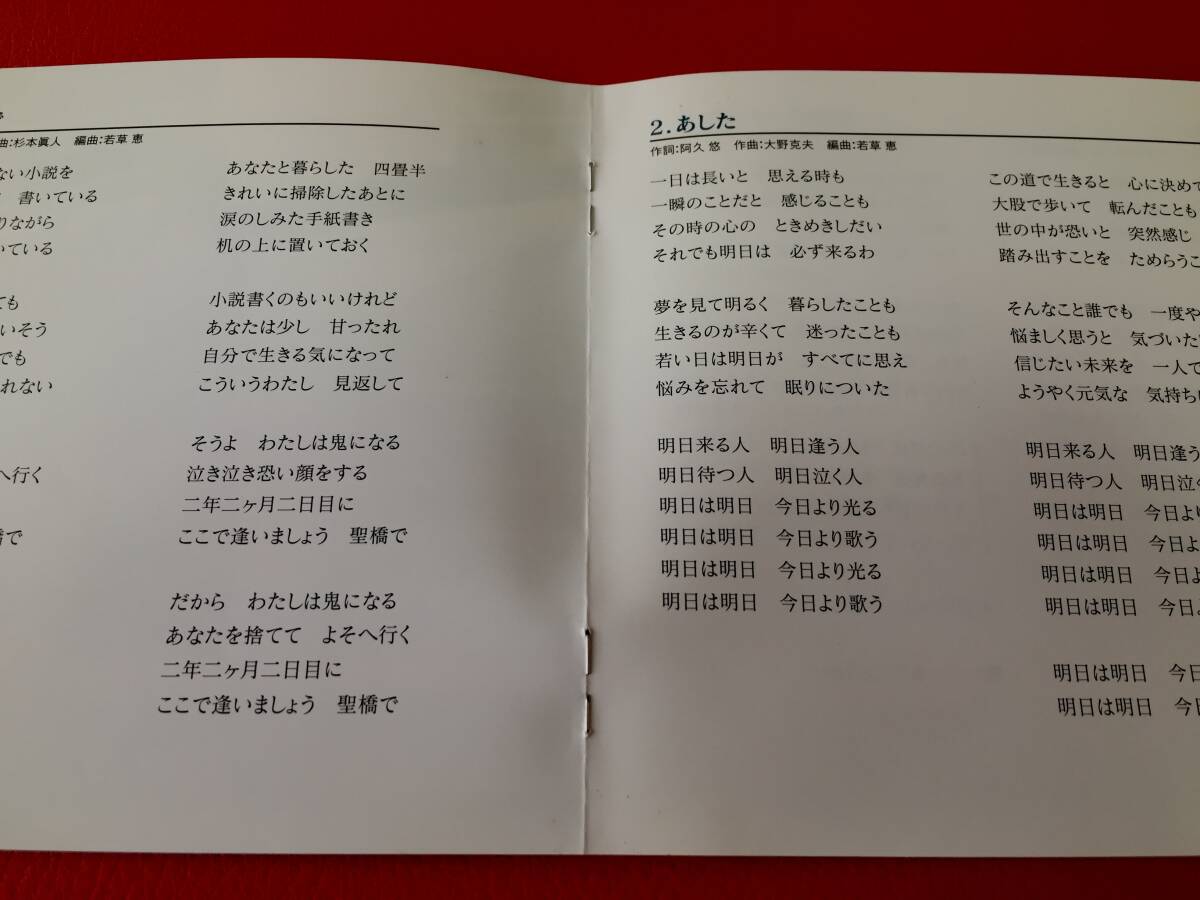 曲:杉本眞人 編曲:若草 恵
ない小説を
書いている
りながら
いている
ても
いそう
でも
れない
へ行く
橋で
あなたと暮らした 四畳半
きれいに掃除したあとに
涙のしみた手紙書き
机の上に置いておく
小説書くのもいいけれど
あなたは少し 甘ったれ
自分で生きる気になって
こういうわたし 見返して
そうよ わたしは鬼になる
泣き泣き恐い顔をする
二年二ヶ月二日目に
ここで逢いましょう 聖橋で
だから わたしは鬼になる
あなたを捨てて よそへ行く
二年二ヶ月二日目に
ここで逢いましょう 聖橋で
2.あした
作詞:阿久 悠 作曲:大野克夫 編曲:若草 恵
一日は長いと 思える時も
一瞬のことだと 感じることも
その時の心の ときめきしだい
それでも明日は 必ず来るわ
夢を見て明るく 暮らしたことも
生きるのが辛くて 迷ったことも
若い日は明日が すべてに思え
悩みを忘れて 眠りについた
明日来る人 明日逢う人
明日待つ人 明日泣く人
明日は明日 今日より光る
明日は明日 今日より歌う
明日は明日 今日より光る
明日は明日 今日より歌う
この道で生きると 心に決めて
大股で歩いて 転んだことも
世の中が恐いと 突然感じ
踏み出すことを ためらうこ
そんなこと誰でも 一度や
悩ましく思うと 気づいた
信じたい未来を 一人で
ようやく元気な 気持ち
明日来る人 明日逢う
明日待つ人 明日泣
明日は明日 今日よ
明日は明日 今日よ
明日は明日 今日
明日は明日 今日
明日は明日 今日
明日は明日 今